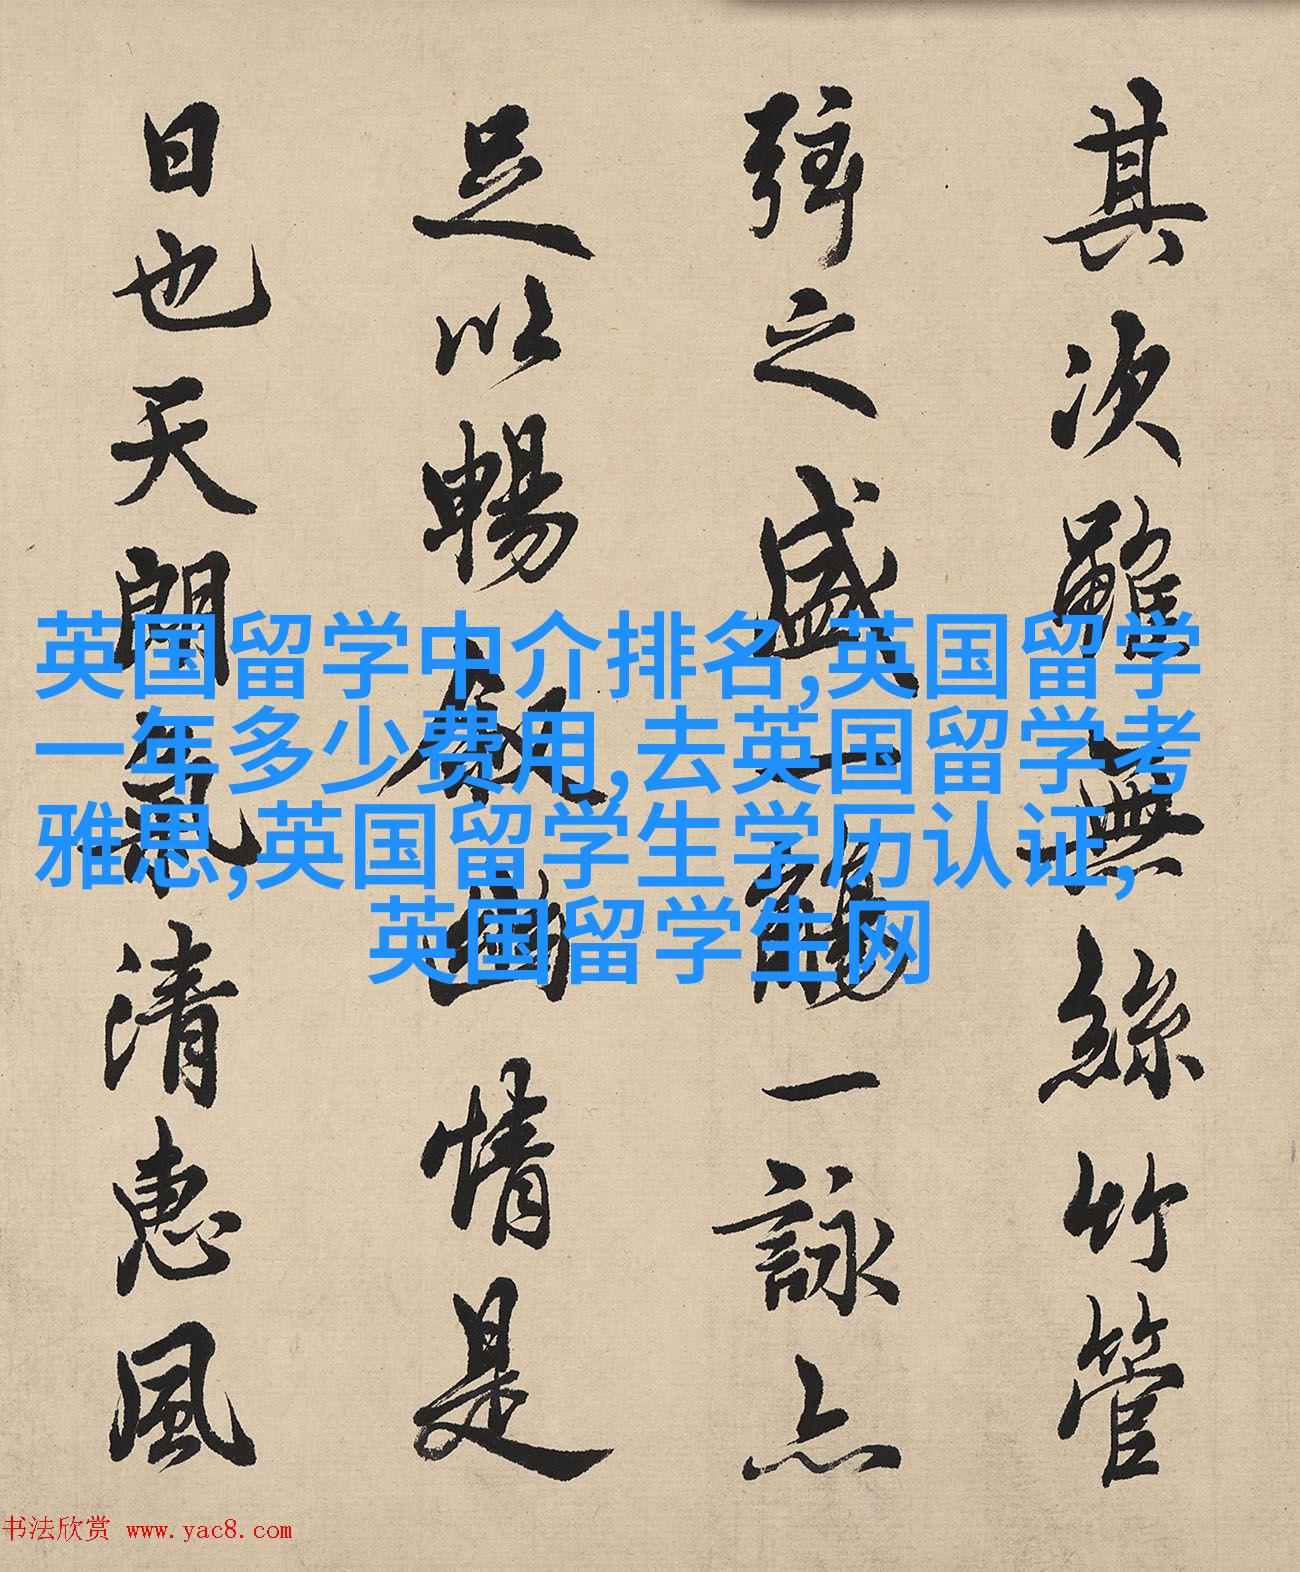 其次雖無絲竹管
弦之盛一觴一詠亦
足以暢敘幽情是
日也天朗氣清惠風
英国留学中介排名,英国留学
一年多少费用,去英国留学考
雅思,英国留学生学历认证,
英国留学生网
书法欣赏 www.yac8.com